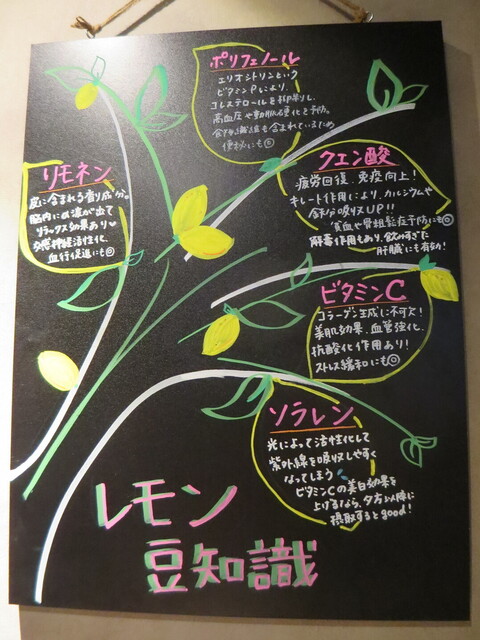 ポリフェノール
エリオシトリンという
ビタミンPにより、
コレステロールを抑制し、
高血圧や動脈硬化を予防。
食物繊維も含まれているため
便秘にも◎
クエン酸
疲労回復、免疫向上!
キレート作用により、カルシウムや
鉄分吸収UP!!
貧血や骨粗鬆症予防にも◎
解毒作用もあり、飲みすぎた
肝臓にも有効!
リモネン
皮に含まれる香り成分。
脳内にα波が出て
リラックス効果あり
交感神経活性化、
血行促進にも◎
ビタミンC
コラーゲン生成に不可欠!
美肌効果、血管強化、
抗酸化作用あり!
ストレス緩和にも◎
ソラレン
光によって活性化して
紫外線を吸収しやすく
なってしまう
ビタミンCの美白効果を
上げるなら、夕方以降に
摂取するとgood!
レモン
豆知識